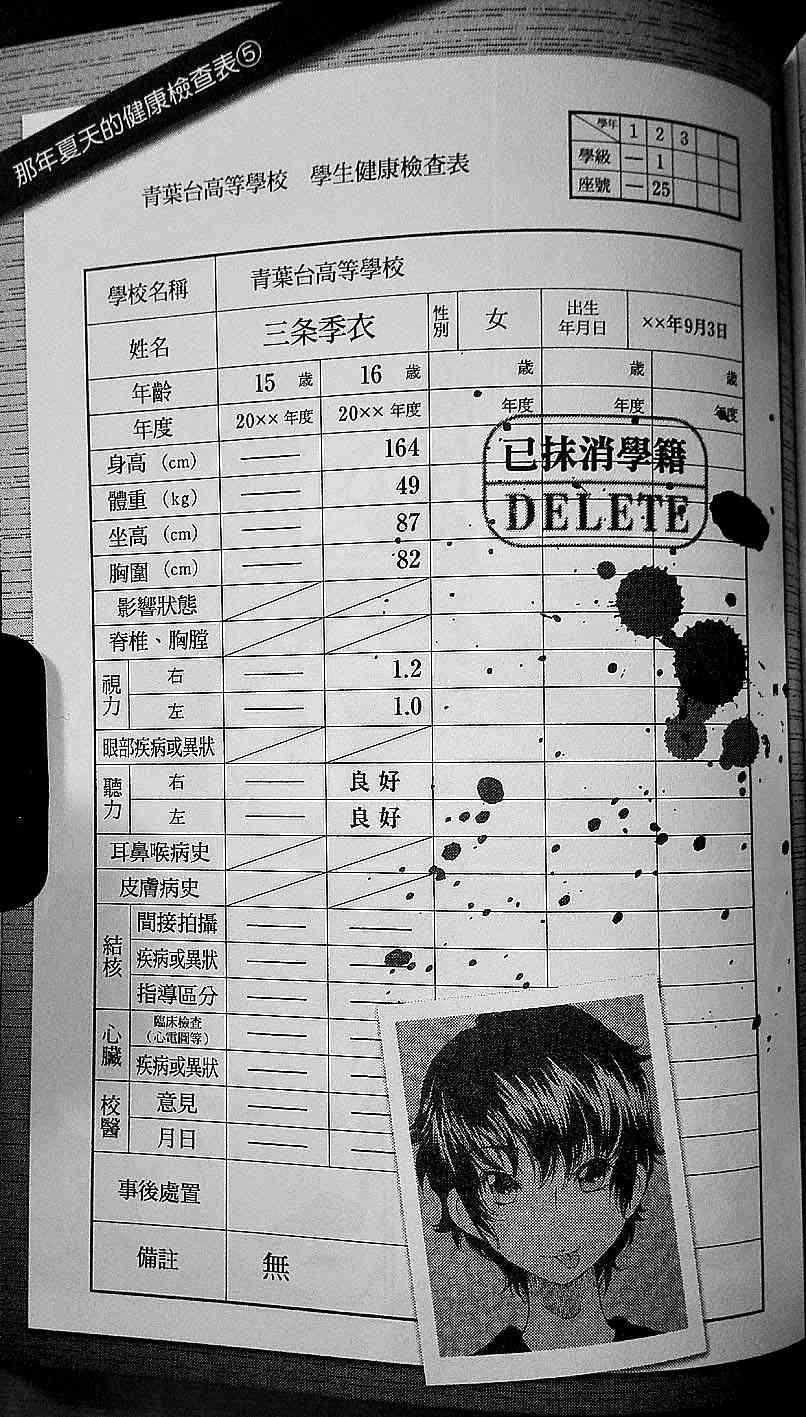 那年夏天的健康檢查表⑤
青葉台高等學校　學生健康檢查表
學年 1 2 3
學級 — 1
座號 — 25
學校名稱 青葉台高等學校
姓名 三条季衣 性別 女 出生年月日 ××年9月3日
年齡 15 歲 16 歲 歲 歲 歲
年度 20××年度 20××年度 年度 年度 年度
身高（cm） —— 164
已抹消學籍
體重（kg） —— 49
DELETE
坐高（cm） —— 87
胸圍（cm） —— 82
影響狀態
脊椎、胸膛
視力 右 —— 1.2
左 —— 1.0
眼部疾病或異狀
聽力 右 —— 良好
左 —— 良好
耳鼻喉病史
皮膚病史
結核 間接拍攝 —— ——
疾病或異狀 —— ——
指導區分 —— ——
心臟 臨床檢查（心電圖等） —— ——
疾病或異狀 —— ——
校醫 意見 —— ——
月日 —— ——
事後處置
備註 無